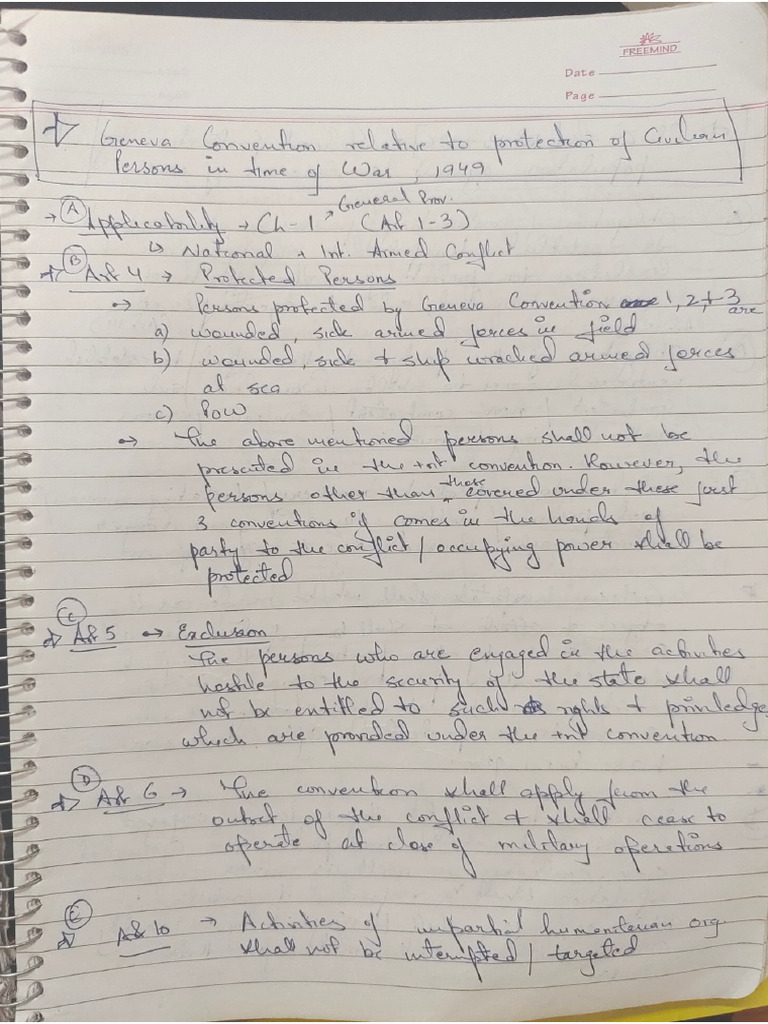 FREEMIND
Date
Page
Geneva Convention relative to protection of Civilian
Persons in time of War, 1949
General Prov.
(A) Applicability → Ch-1 (Art 1-3)
↳ National + Int. Armed Conflict
(B) Art 4 → Protected Persons
→ Persons protected by Geneva Convention 1, 2, + 3 are
a) wounded, sick armed forces in field
b) wounded, sick + ship wracked armed forces
at sea
c) POW
→ The above mentioned persons shall not be
in the convention. However, the
persons other than those covered under these first
3 conventions if comes in the hands of
party to the conflict / occupying power shall be
protected
(C) Art 5 → Exclusion
The persons who are engaged in the activities
hostile to the security of the state shall
not be entitled to such rights + priviledge
which are provided under the convention
(D) Art 6 → The convention shall apply from the
outset of the conflict + shall cease to
operate at close of military operations
(E) Art 10 → Activities of impartial humaniterian org.
shall not be interrupted / targeted